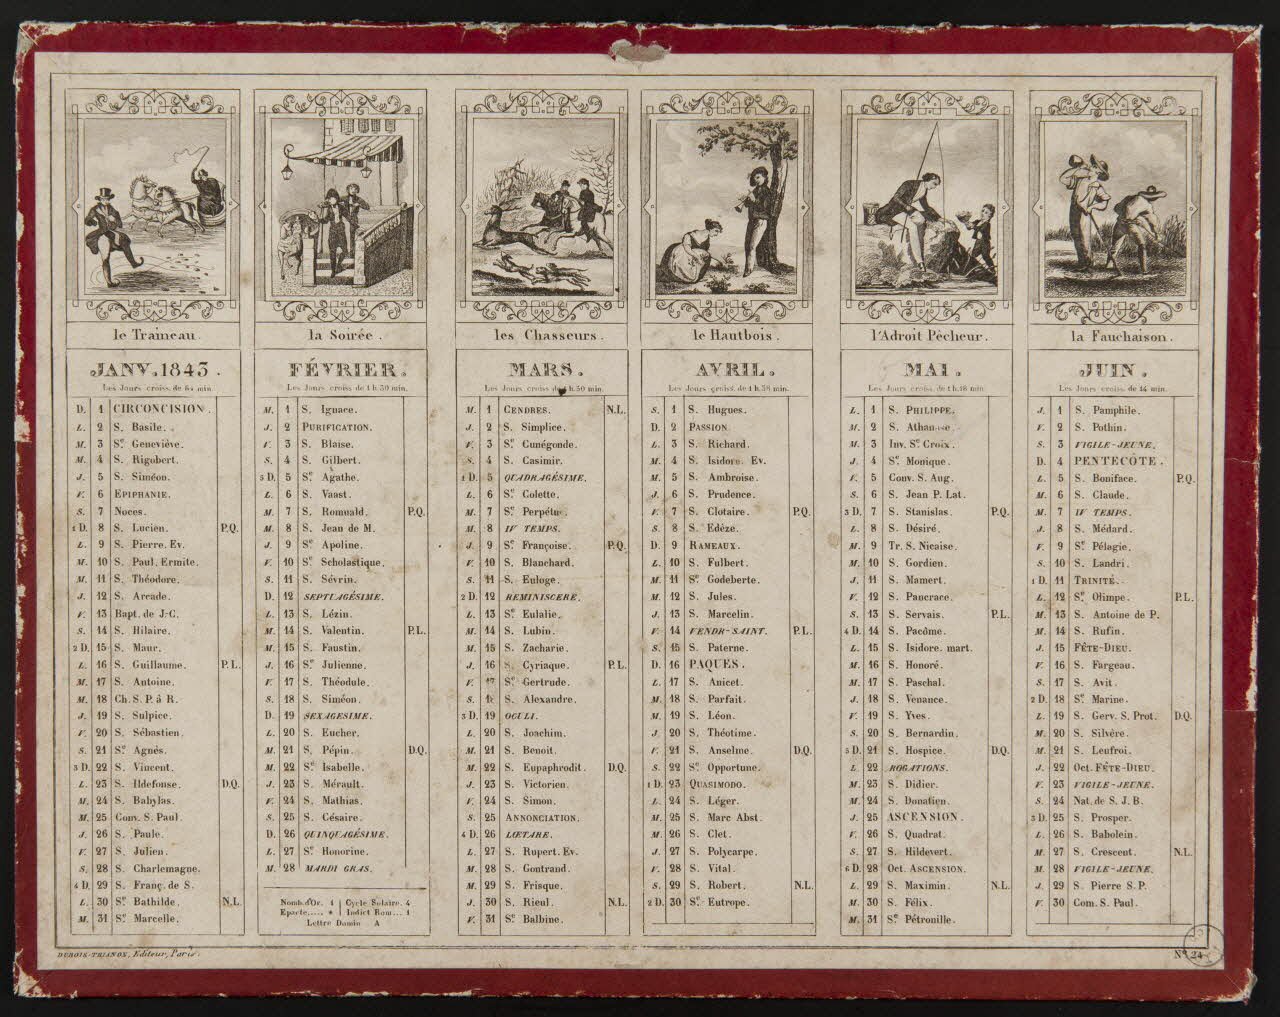 le Traineau
JANV. 1843.
Les Jours croiss. de 64 min.
D. 1 CIRCONCISION.
L. 2 S. Basile.
M. 3 Se. Geneviève.
M. 4 S. Rigobert.
J. 5 S. Siméon.
V. 6 EPIPHANIE.
S. 7 Noces.
1 D. 8 S. Lucien. P.Q.
L. 9 S. Pierre. Ev.
M. 10 S. Paul. Ermite.
M. 11 S. Théodore.
J. 12 S. Arcade.
V. 13 Bapt. de J-C.
S. 14 S. Hilaire.
2 D. 15 S. Maur.
L. 16 S. Guillaume. P.L.
M. 17 S. Antoine.
M. 18 Ch. S. P. à R.
J. 19 S. Sulpice.
V. 20 S. Sébastien.
S. 21 Se. Agnès.
3 D. 22 S. Vincent.
L. 23 S. Ildefonse. D.Q.
M. 24 S. Babylas.
M. 25 Conv. S. Paul.
J. 26 S. Paule.
V. 27 S. Julien.
S. 28 S. Charlemagne.
4 D. 29 S. Franç. de S.
L. 30 Se. Bathilde. N.L.
M. 31 Se. Marcelle.
la Soirée.
FÉVRIER.
Les Jours croiss. de 1 h. 30 min.
M. 1 S. Ignace.
J. 2 PURIFICATION.
V. 3 S. Blaise.
S. 4 S. Gilbert.
5 D. 5 Se. Agathe.
L. 6 S. Vaast.
M. 7 S. Romuald. P.Q.
M. 8 S. Jean de M.
J. 9 Se. Apoline.
V. 10 Se. Scholastique.
S. 11 S. Sévrin.
D. 12 SEPTUAGÉSIME.
L. 13 S. Lézin.
M. 14 S. Valentin. P.L.
M. 15 S. Faustin.
J. 16 Se. Julienne.
V. 17 S. Théodule.
S. 18 S. Siméon.
D. 19 SEXAGESIME.
L. 20 S. Eucher.
M. 21 S. Pépin. D.Q.
M. 22 Se. Isabelle.
J. 23 S. Mérault.
V. 24 S. Mathias.
S. 25 S. Césaire.
D. 26 QUINQUAGÉSIME.
L. 27 Se. Honorine.
M. 28 MARDI GRAS.
Nomb. d'Or. 1 | Cycle Solaire. 4
Epacte..... * | Indict Rom... 1
Lettre Domin A
les Chasseurs.
MARS.
Les Jours croiss. de 1 h. 50 min.
M. 1 CENDRES. N.L.
J. 2 S. Simplice.
V. 3 Se. Cunégonde.
S. 4 S. Casimir.
1 D. 5 QUADRAGÉSIME.
L. 6 Se. Colette.
M. 7 Se. Perpétue.
M. 8 IV TEMPS.
J. 9 Se. Françoise. P.Q.
V. 10 S. Blanchard.
S. 11 S. Euloge.
2 D. 12 REMINISCERE.
L. 13 Se. Eulalie.
M. 14 S. Lubin.
M. 15 S. Zacharie.
J. 16 S. Cyriaque. P.L.
V. 17 Se. Gertrude.
S. 18 S. Alexandre.
3 D. 19 OCULI.
L. 20 S. Joachim.
M. 21 S. Benoit.
M. 22 S. Eupaphrodit. D.Q.
J. 23 S. Victorien.
V. 24 S. Simon.
S. 25 ANNONCIATION.
4 D. 26 LŒTARE.
L. 27 S. Rupert. Ev.
M. 28 S. Gontrand.
M. 29 S. Frisque.
J. 30 S. Rieul. N.L.
V. 31 Se. Balbine.
le Hautbois.
AVRIL.
Les Jours croiss. de 1 h. 38 min.
S. 1 S. Hugues.
D. 2 PASSION.
L. 3 S. Richard.
M. 4 S. Isidore. Ev.
M. 5 S. Ambroise.
J. 6 S. Prudence.
V. 7 S. Clotaire. P.Q.
S. 8 S. Edèze.
D. 9 RAMEAUX.
L. 10 S. Fulbert.
M. 11 Se. Godeberte.
M. 12 S. Jules.
J. 13 S. Marcelin.
V. 14 VENDR-SAINT. P.L.
S. 15 S. Paterne.
D. 16 PAQUES.
L. 17 S. Anicet.
M. 18 S. Parfait.
M. 19 S. Léon.
J. 20 S. Théotime.
V. 21 S. Anselme. D.Q.
S. 22 Se. Opportune.
1 D. 23 QUASIMODO.
L. 24 S. Léger.
M. 25 S. Marc Abst.
M. 26 S. Clet.
J. 27 S. Polycarpe.
V. 28 S. Vital.
S. 29 S. Robert. N.L.
2 D. 30 Se. Eutrope.
l'Adroit Pêcheur.
MAI.
Les Jours croiss. de 1 h. 18 min.
L. 1 S. PHILIPPE.
M. 2 S. Athanase.
M. 3 Inv. Se. Croix.
J. 4 Se. Monique.
V. 5 Conv. S. Aug.
S. 6 S. Jean P. Lat.
3 D. 7 S. Stanislas. P.Q.
L. 8 S. Désiré.
M. 9 Tr. S. Nicaise.
M. 10 S. Gordien.
J. 11 S. Mamert.
V. 12 S. Pancrace.
S. 13 S. Servais. P.L.
4 D. 14 S. Pacôme.
L. 15 S. Isidore. mart.
M. 16 S. Honoré.
M. 17 S. Paschal.
J. 18 S. Venance.
V. 19 S. Yves.
S. 20 S. Bernardin.
5 D. 21 S. Hospice. D.Q.
L. 22 ROGATIONS.
M. 23 S. Didier.
M. 24 S. Donatien.
J. 25 ASCENSION.
V. 26 S. Quadrat.
S. 27 S. Hildevert.
6 D. 28 Oct. ASCENSION.
L. 29 S. Maximin. N.L.
M. 30 S. Félix.
M. 31 Se. Pétronille.
la Fauchaison.
JUIN.
Les Jours croiss. de 14 min.
J. 1 S. Pamphile.
V. 2 S. Pothin.
S. 3 VIGILE-JEUNE.
D. 4 PENTECÔTE.
L. 5 S. Boniface. P.Q.
M. 6 S. Claude.
M. 7 IV TEMPS.
J. 8 S. Médard.
V. 9 Se. Pélagie.
S. 10 S. Landri.
1 D. 11 TRINITÉ.
L. 12 Se. Olimpe. P.L.
M. 13 S. Antoine de P.
M. 14 S. Rufin.
J. 15 FÊTE-DIEU.
V. 16 S. Fargeau.
S. 17 S. Avit.
2 D. 18 Se. Marine.
L. 19 S. Gerv. S. Prot. D.Q.
M. 20 S. Silvère.
M. 21 S. Leufroi.
J. 22 Oct. FÊTE-DIEU.
V. 23 VIGILE-JEUNE.
S. 24 Nat. de S. J. B.
3 D. 25 S. Prosper.
L. 26 S. Babolein.
M. 27 S. Crescent. N.L.
M. 28 VIGILE-JEUNE.
J. 29 S. Pierre S. P.
V. 30 Com. S. Paul.
DUBOIS-TRIANON, Editeur, Paris.
No. 24